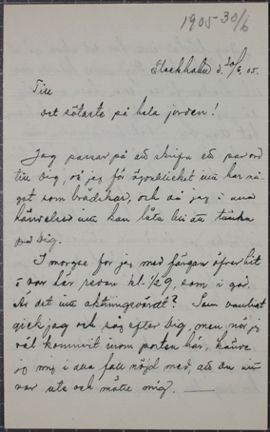 1905-30/6
Stockholm d. 30/6. 05.
Till
det sötaste på hela jorden!
Jag passar på att skrifva ett par ord
till Dig, då jag för ögonblicket inte har nå-
got som brådskar, och då jag i alla
händelser inte kan låta bli att tänka
på Dig.
I morgse for jag med färjan öfver hit
i var här redan kl. 1/29, som i god.
Är det inte aktningsvärdt? Som vanligt
gick jag och såg efter Dig, men när jag
väl kommit inom porten här, kände
jag mig i alla fall nöjd med, att Du inte
var ute och mötte mig.